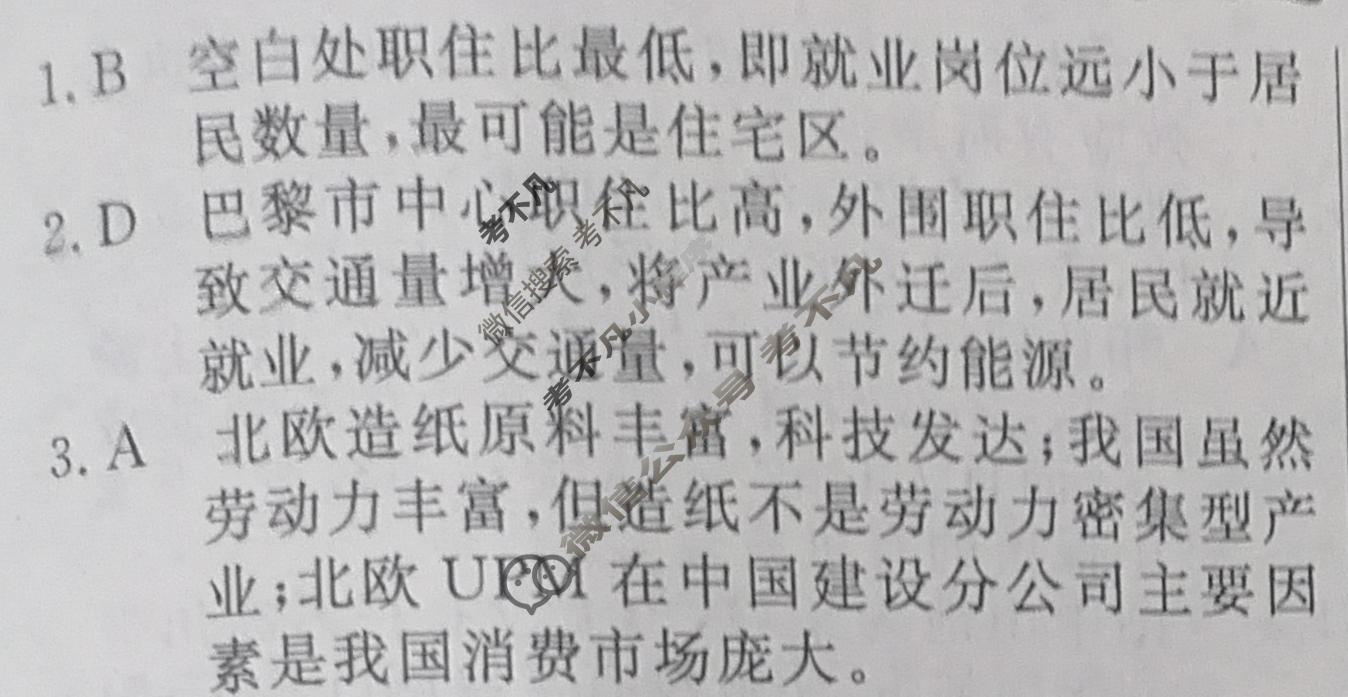 1. B 空白处职住比最低，即就业岗位远小于居
民数量，最可能是住宅区。
2. D 巴黎市中心职住比高，外围职住比低，导
致交通量增大，将产业外迁后，居民就近
就业，减少交通量，可以节约能源。
3. A 北欧造纸原料丰富，科技发达；我国虽然
劳动力丰富，但造纸不是劳动力密集型产
业；北欧 UPM 在中国建设分公司主要因
素是我国消费市场庞大。
考不凡
微信搜索 考不凡
考不凡小程序
微信公众号 考不凡